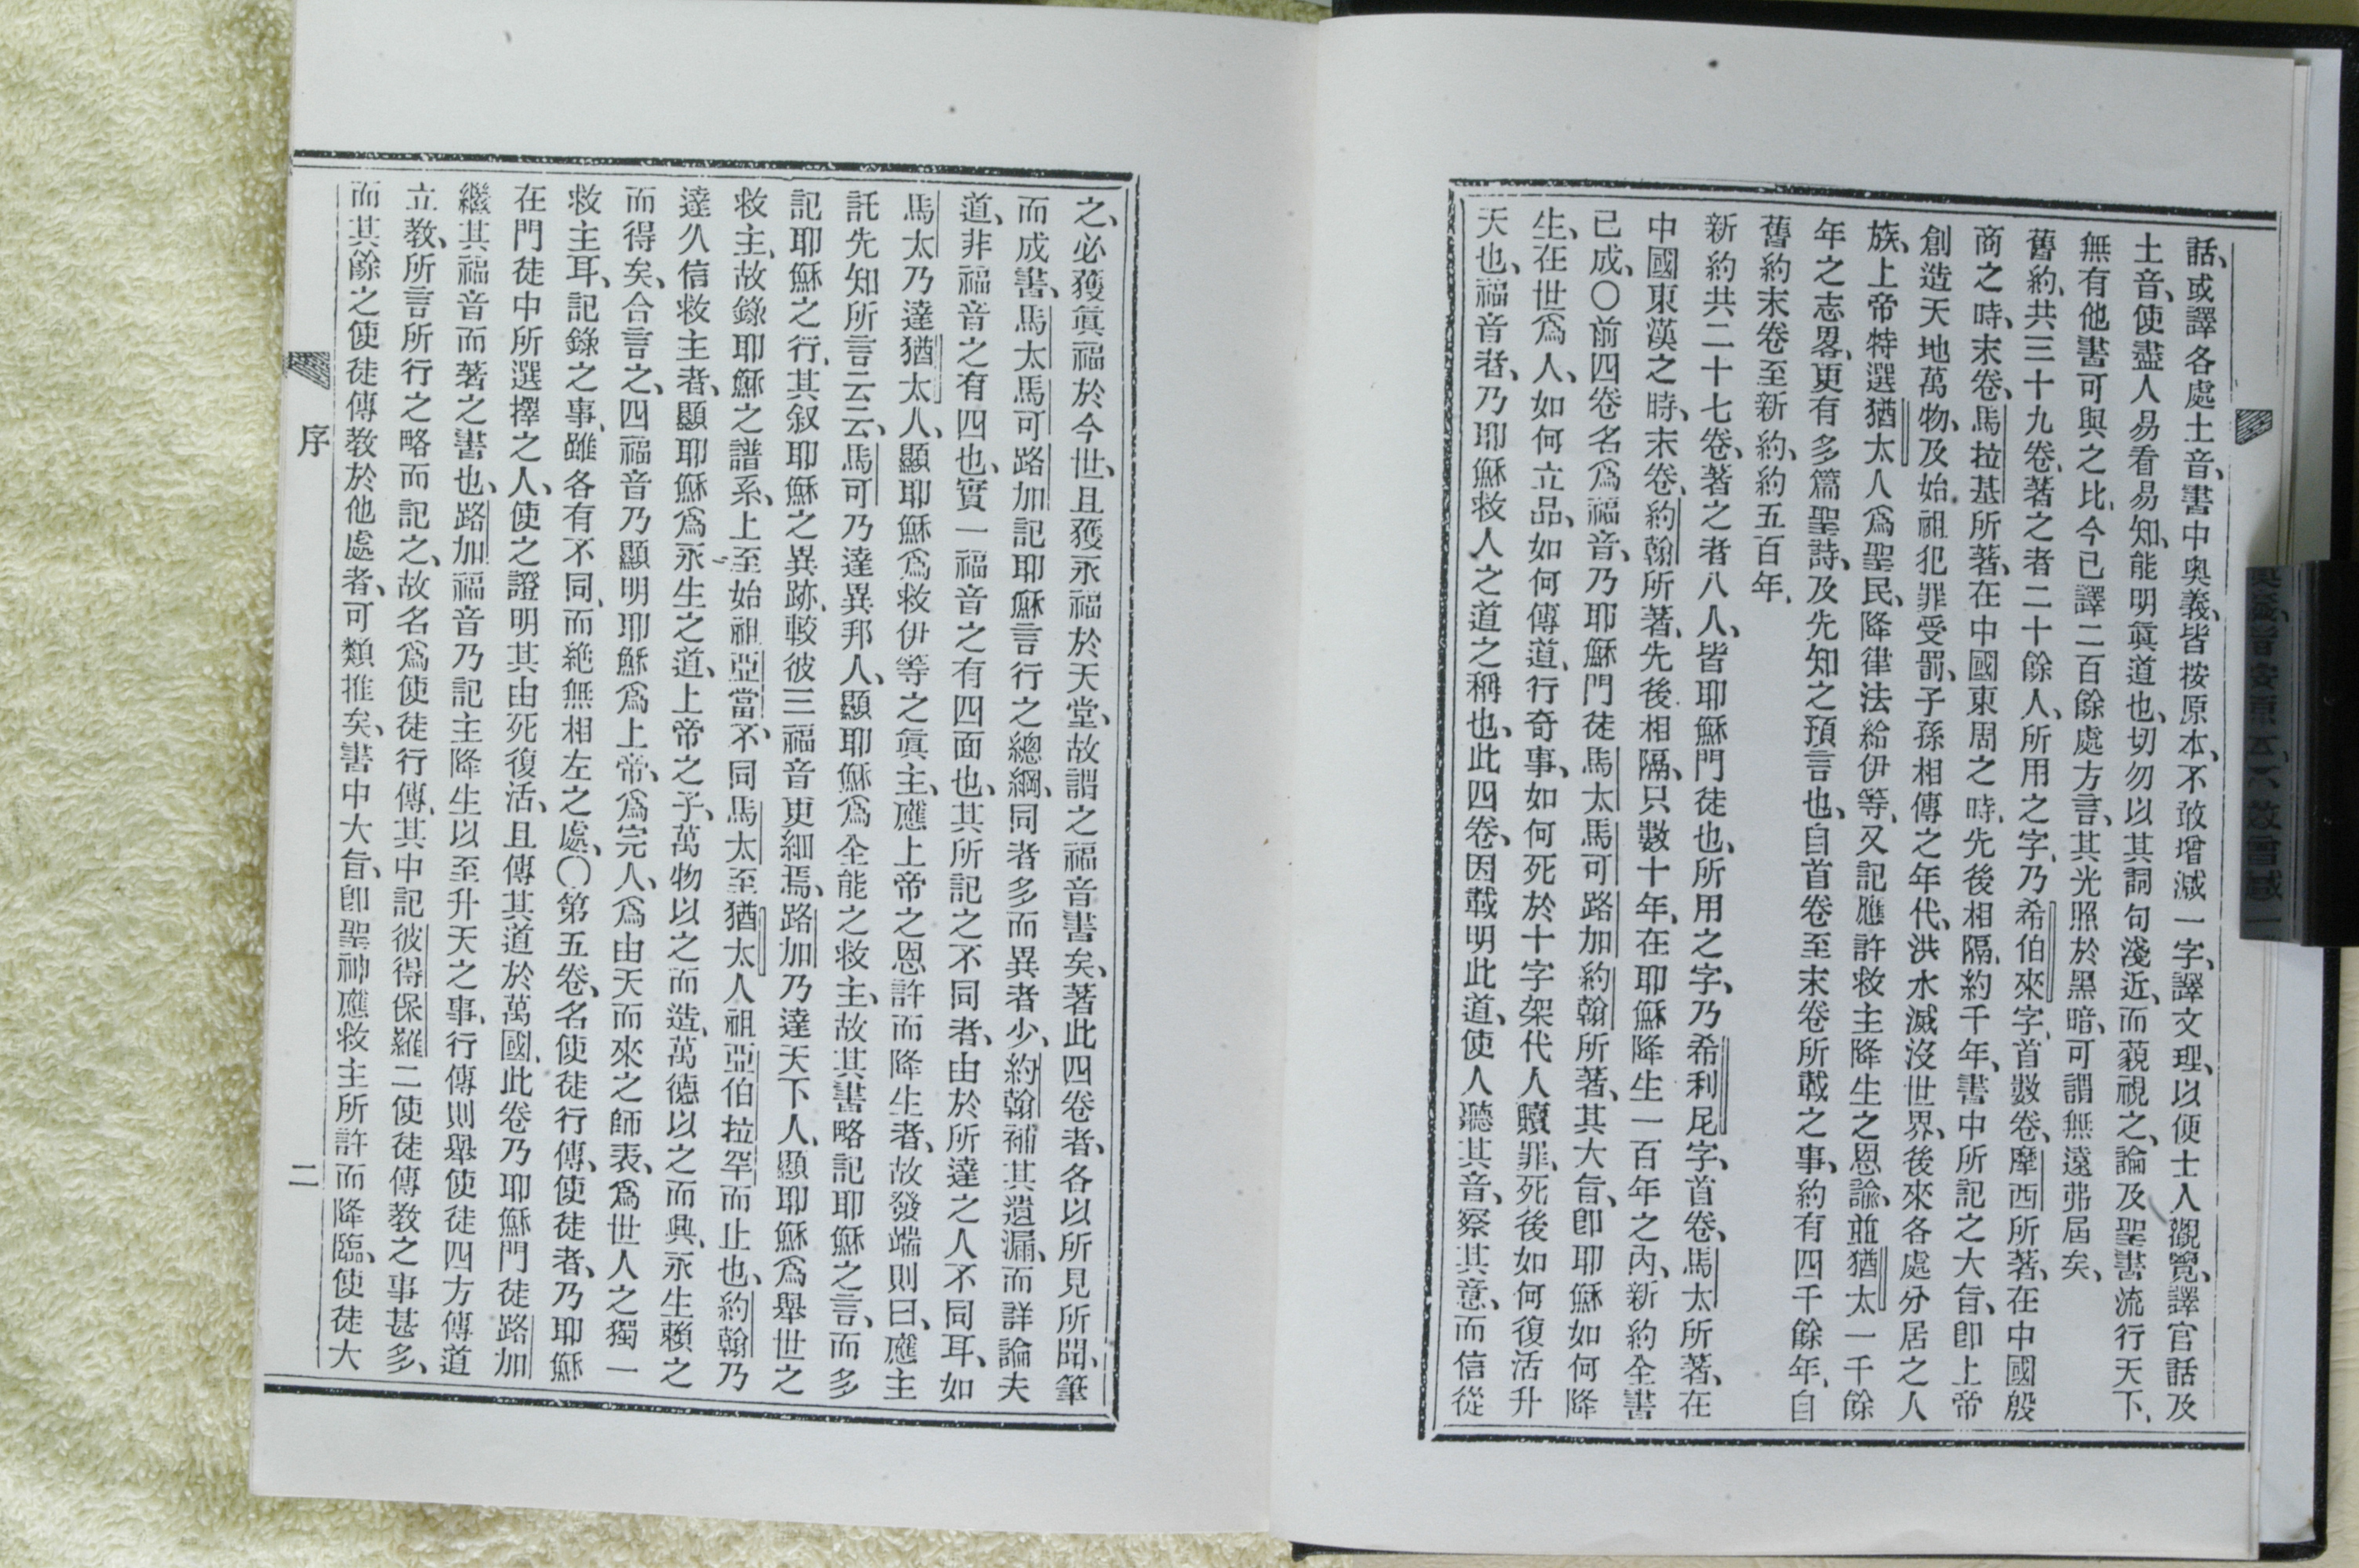 話、或譯各處土音、書中奥義、皆按原本、不敢增減一字、譯文理、以便士人觀覽、譯官話及
土音、使盡人易看易知、能明眞道也、切勿以其詞句淺近、而藐視之、論及聖書流行天下、
無有他書可與之比、今已譯二百餘處方言、其光照於黑暗、可謂無遠弗屆矣、
舊約、共三十九卷、著之者二十餘人、所用之字、乃希伯來字、首數卷、摩西所著、在中國殷
商之時、末卷、馬拉基所著、在中國東周之時、先後相隔、約千年、書中所記之大旨、卽上帝
創造天地萬物、及始祖犯罪受罰、子孫相傳之年代、洪水滅沒世界、後來各處分居之人
族、上帝特選猶太人爲聖民、降律法給伊等、又記應許救主降生之恩諭、並猶太一千餘
年之志畧、更有多篇聖詩、及先知之預言也、自首卷至末卷所載之事、約有四千餘年、自
舊約末卷至新約、約五百年、
新約共二十七卷、著之者八人、皆耶穌門徒也、所用之字、乃希利尼字、首卷、馬太所著、在
中國東漢之時、末卷、約翰所著、先後相隔、只數十年、在耶穌降生一百年之內、新約全書
已成、〇前四卷名爲福音、乃耶穌門徒馬太馬可路加約翰所著、其大旨、卽耶穌如何降
生、在世爲人、如何立品、如何傳道、行奇事、如何死於十字架代人贖罪、死後如何復活升
天也、福音者、乃耶穌救人之道之稱也、此四卷、因載明此道、使人聽其音、察其意、而信從
之、必獲眞福於今世、且獲永福於天堂、故謂之福音書矣、著此四卷者、各以所見所聞、筆
而成書、馬太馬可路加記耶穌言行之總綱、同者多而異者少、約翰補其遺漏、而詳論夫
道、非福音之有四也、實一福音之有四面也、其所記之不同者、由於所達之人不同耳、如
馬太乃達猶太人、顯耶穌爲救伊等之眞主、應上帝之恩許而降生者、故發端則曰、應主
託先知所言云云、馬可乃達異邦人、顯耶穌爲全能之救主、故其書略記耶穌之言、而多
記耶穌之行、其叙耶穌之異跡、較彼三福音更細焉、路加乃達天下人、顯耶穌爲舉世之
救主、故錄耶穌之譜系、上至始祖亞當、不同馬太至猶太人祖亞伯拉罕而止也、約翰乃
達久信救主者、顯耶穌爲永生之道、上帝之子、萬物以之而造、萬德以之而興、永生賴之
而得矣、合言之、四福音乃顯明耶穌爲上帝、爲完人、爲由天而來之師表、爲世人之獨一
救主耳、記錄之事、雖各有不同、而絶無相左之處、〇第五卷、名使徒行傳、使徒者、乃耶穌
在門徒中所選擇之人、使之證明其由死復活、且傳其道於萬國、此卷乃耶穌門徒路加
繼其福音而著之書也、路加福音乃記主降生以至升天之事、行傳則舉使徒四方傳道
立教、所言所行之略而記之、故名爲使徒行傳、其中記彼得保羅二使徒傳教之事甚多、
而其餘之使徒傳教於他處者、可類推矣、書中大旨、卽聖神應救主所許而降臨、使徒大
序
二